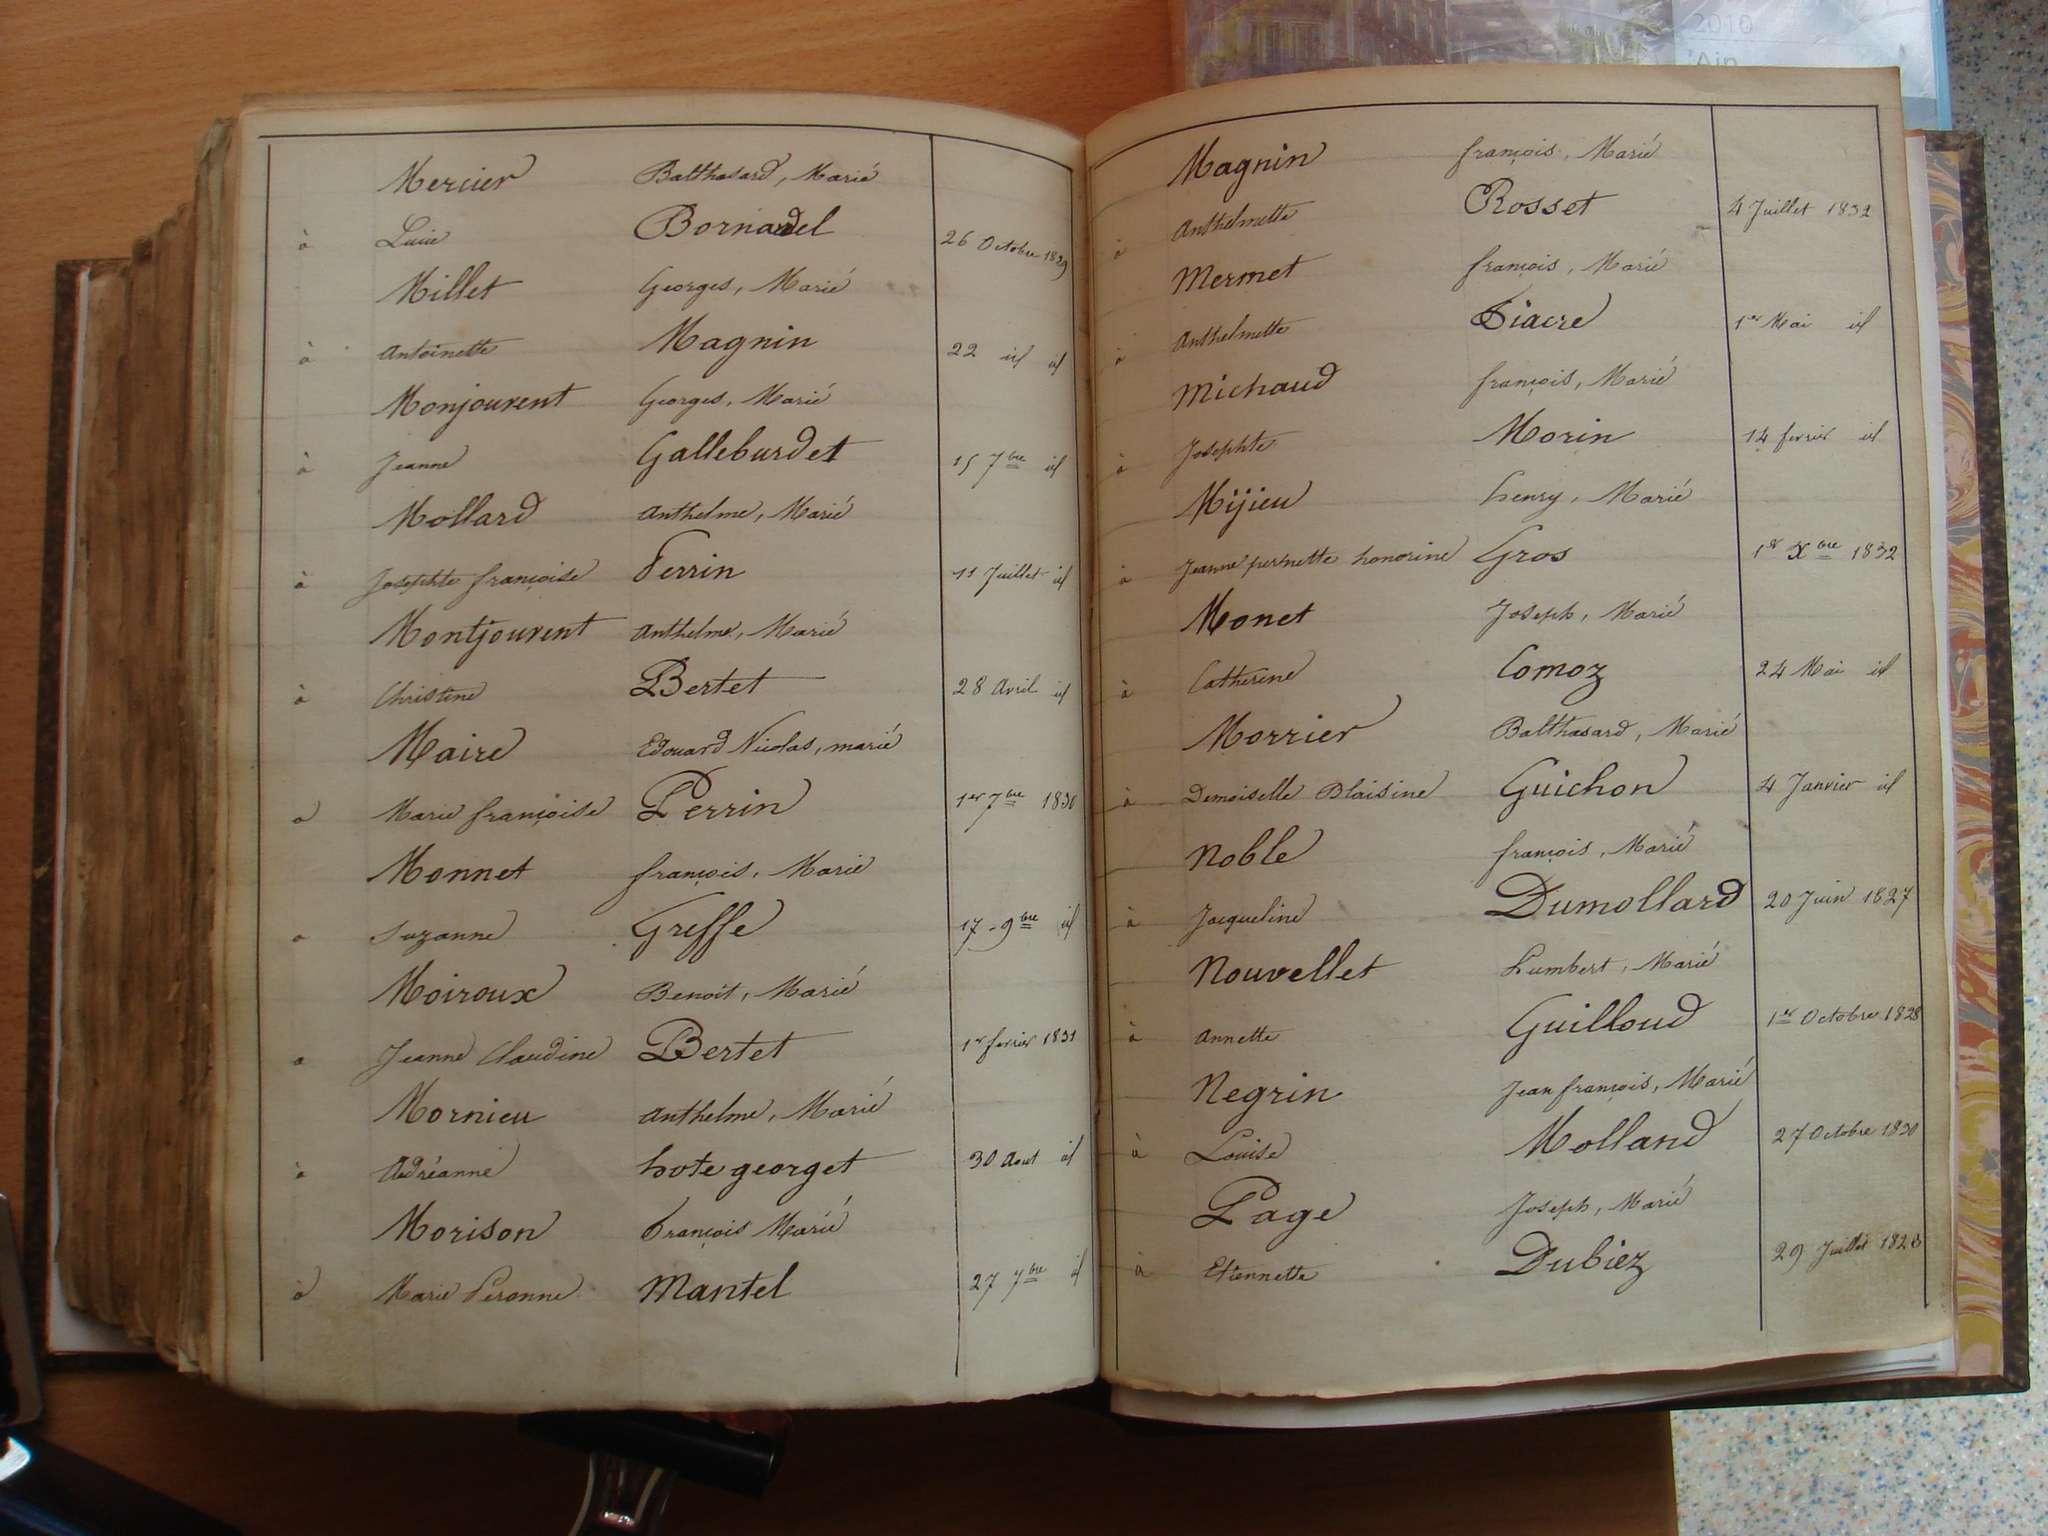 Mercier Balthasard, Marié
à Lucie Bornardel 26 Octobre 1829
Millet Georges, Marié
à Antoinette Magnin 22 id id
Monjouvent Georges, Marié
à Jeanne Galleburdet 15 7bre id
Mollard Anthelme, Marié
à Josephte françoise Ferrin 11 Juillet id
Montjouvent Anthelme, Marié
à Christine Bertet 28 Avril id
Maire Edouard Nicolas, marié
à Marie françoise Perrin 1er 7bre 1830
Monnet françois, Marié
à Suzanne Greffe 17 9bre id
Moiroux Benoit, Marié
à Jeanne Claudine Bertet 1er fevrier 1831
Mornieu Anthelme, Marié
à Adréanne hote georget 30 Aout id
Morison François Marié
à Marie Peronne Mantel 27 7bre id
2010
'Ain
Magnin françois, Marié
à Anthelmette Rosset 4 Juillet 1832
Mermet françois, Marié
à Anthelmette Fiacre 1er Mai id
Michaud françois, Marié
à Josephte Morin 14 fevrier id
Mijieu henry, Marié
à Jeanne pernette honorine Gros 1er Xbre 1832
Monet Joseph, Marié
à Catherine Comoz 24 Mai id
Morrier Balthasard, Marié
à Demoiselle Blaisine Guichon 4 Janvier id
Noble françois, Marié
à Jacqueline Dumollard 20 Juin 1827
Nouvellet humbert, Marié
à Annette Guilloud 1er Octobre 1828
Negrin Jean françois, Marié
à Louise Molland 27 Octobre 1830
Page Joseph, Marié
à Etiennette Dubiez 29 Juillet